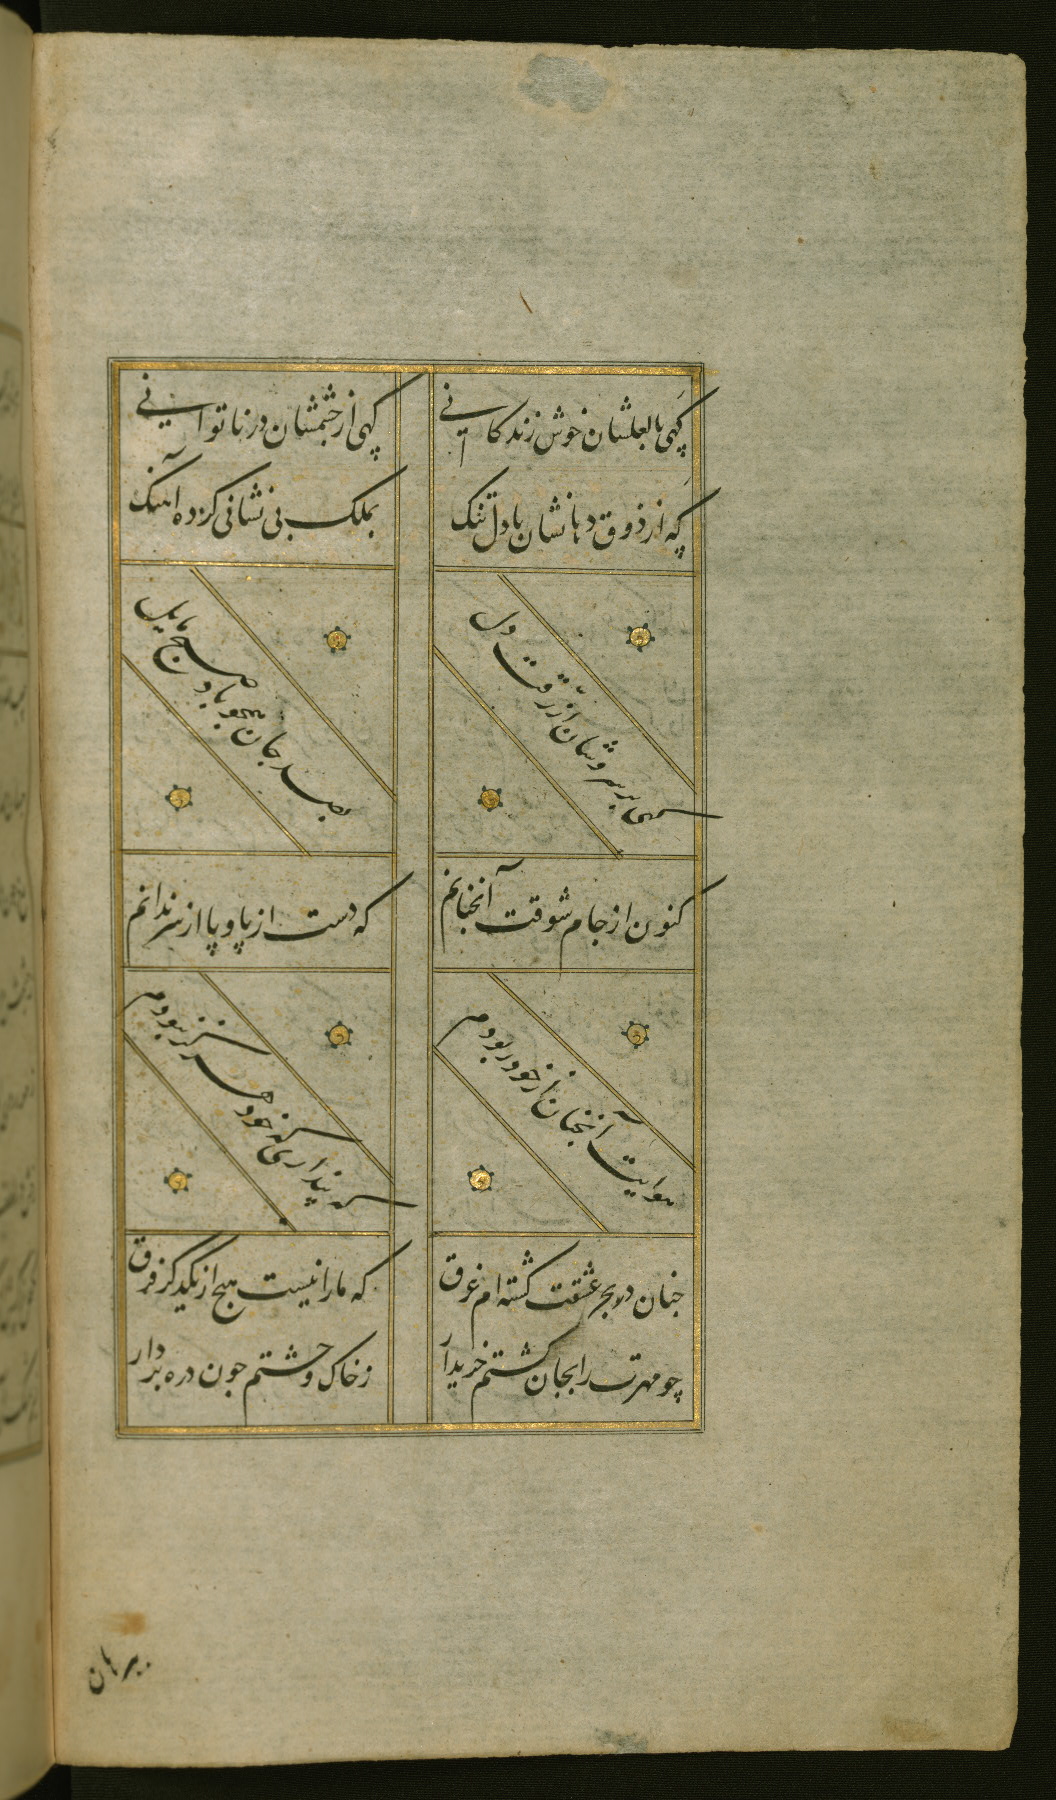 کهی بالعلشان خوش زندکانی
کهی از چشمشان در ناتوانی
که از ذوق دهانشان با دل تنک
بملک بی نشانی کرده آهنک
کهی بر سروشان از رقت دل
بصد جان همچو باد صبح مایل
کنون از جام شوقت آنچنانم
که دست از پا و پا از سر ندانم
هوایت آنچنان از خود ربودم
که پنداری که خود هرکز نبودم
چنان در بحر عشقت کشته ام غرق
که ما را نیست هیچ از یکدکر فرق
چو مهرت را بجان کشتم خریدار
ز خاک وحشتم چون ذره بردار